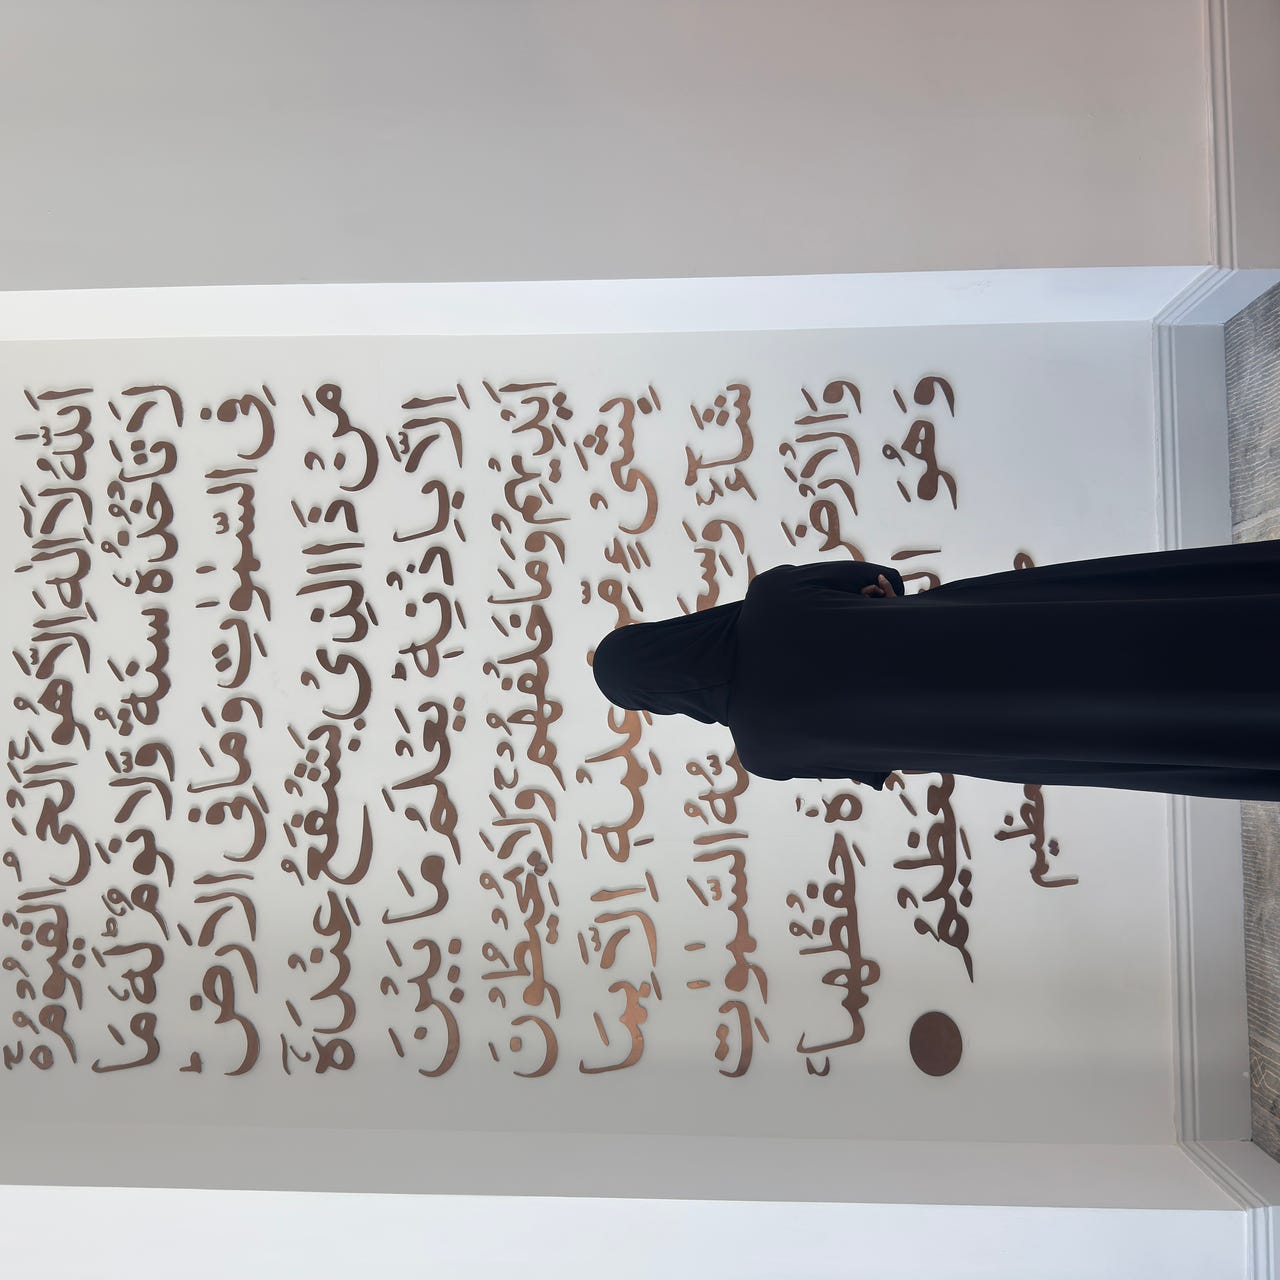 اَللّٰهُ لَاۤ اِلٰهَ اِلَّا هُوَۚ اَلْحَیُّ الْقَیُّوْمُۚ
لَا تَاْخُذُهٗ سِنَةٌ وَّلَا نَوْمٌؕ لَهٗ مَا
فِی السَّمٰوٰتِ وَمَا فِی الْاَرْضِؕ
مَنْ ذَا الَّذِیْ یَشْفَعُ عِنْدَهٗۤ
اِلَّا بِاِذْنِهٖؕ یَعْلَمُ مَا بَیْنَ
اَیْدِیْهِمْ وَمَا خَلْفَهُمْۚ وَلَا یُحِیْطُوْنَ
بِشَیْءٍ عِلْمِهٖۤ اِلَّا بِمَا
شَآءَۚ السَّمٰوٰتِ
وَالْاَرْضَ حِفْظُهُمَاۚ
وَهُوَ الْعَظِیْمُ